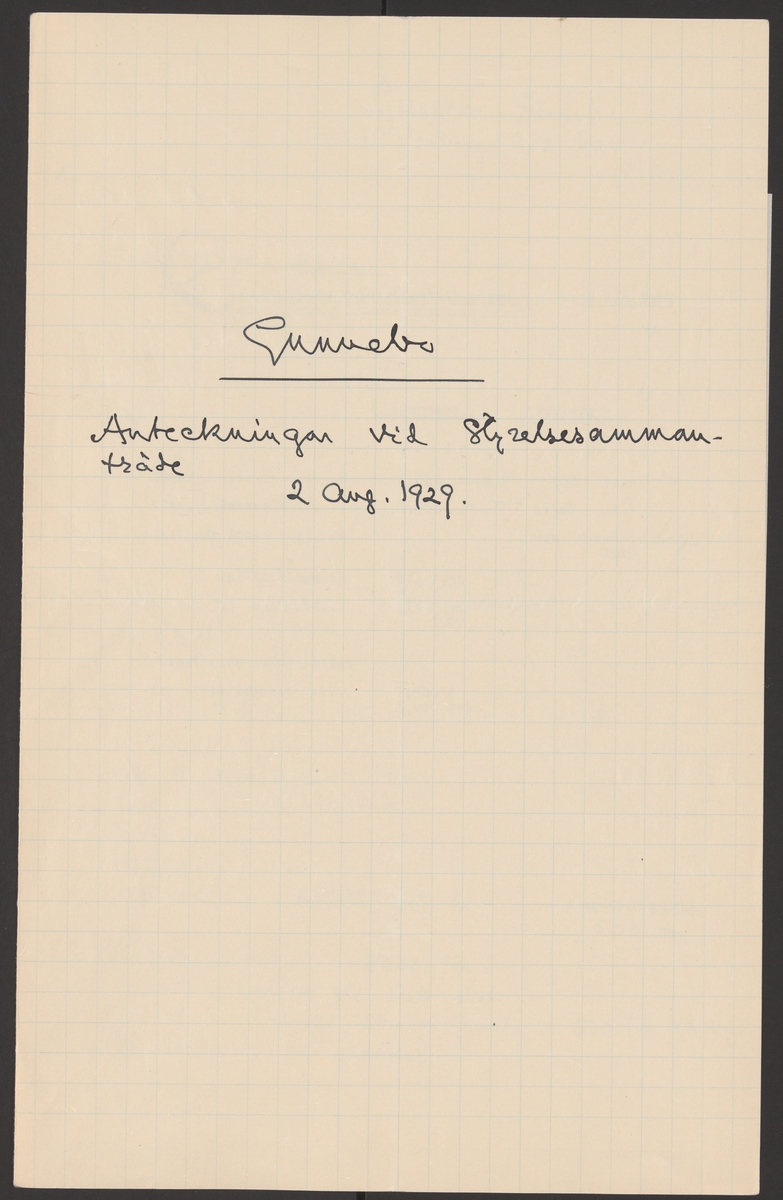 Gunnebo
Anteckningar vid Styrelsesamman-
träde
2 Aug. 1929.